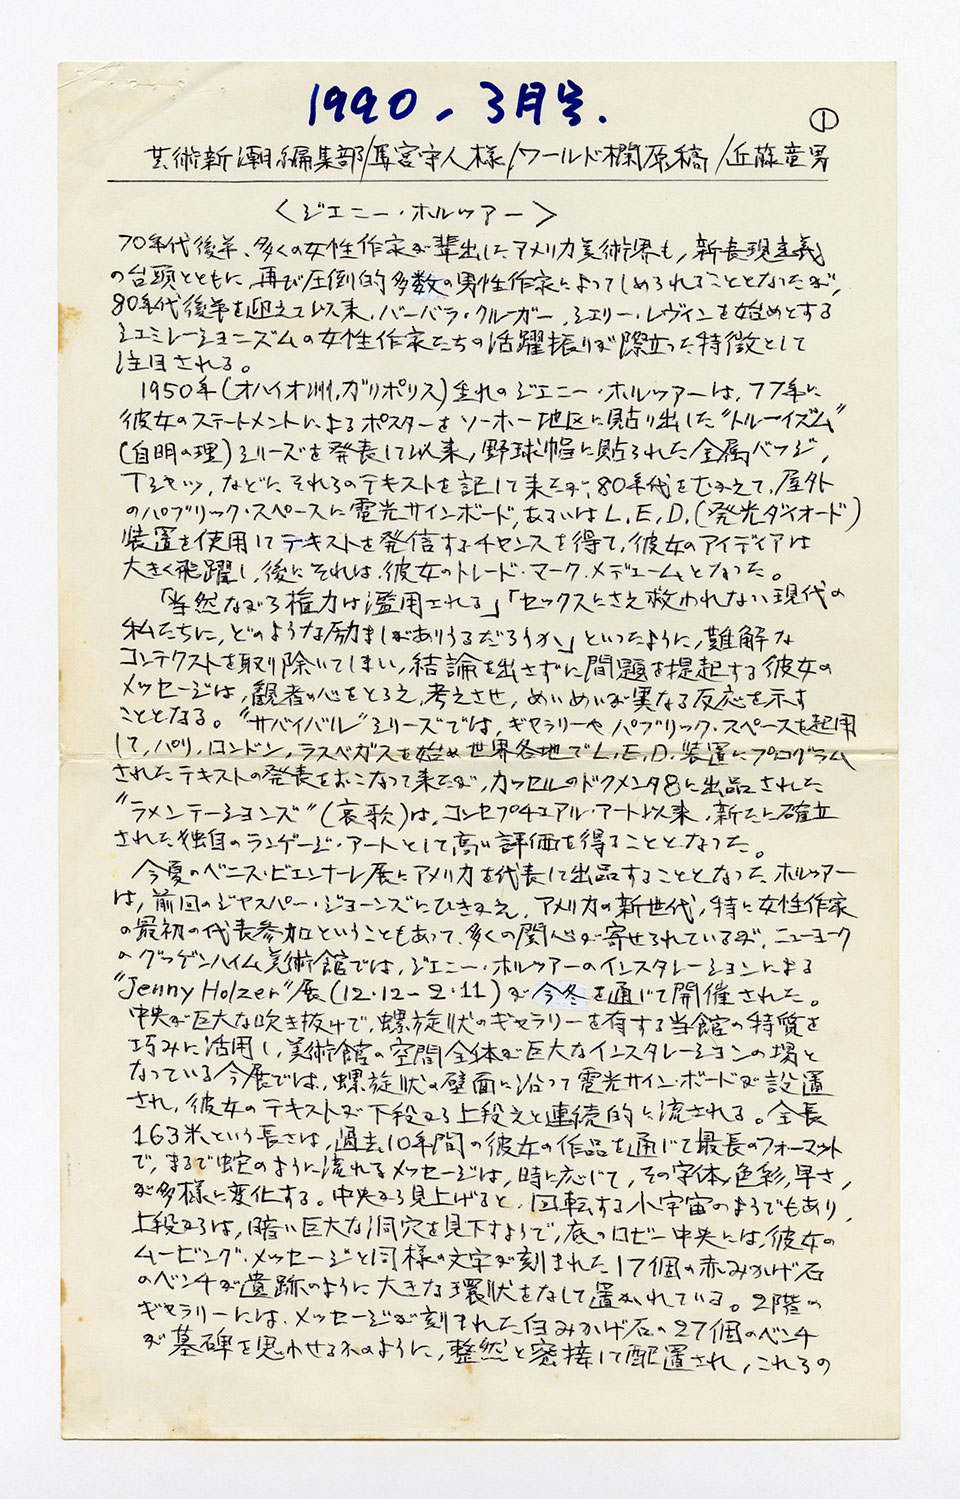 1990、3月号.
①
芸術新潮編集部/馬宮守人様/ワールド欄原稿/近藤竜男
〈ジエニー・ホルツアー〉
70年代後半、多くの女性作家が輩出したアメリカ美術界も、新表現主義
の台頭とともに、再び圧倒的多数の男性作家によってしめられることとなったが、
80年代後半を迎えて以来、バーバラ・クルーガー、シェリー・レヴィンを始めとする
シュミレーショニズムの女性作家たちの活躍振りが際立った特徴として
注目される。
1950年(オハイオ洲,ガリポリス)生れのジエニー・ホルツアーは、77年に
彼女のステートメントによるポスターをソーホー地区に貼り出した"トルーイズム"
(自明の理)シリーズを発表して以来,野球帽に貼られた金属バッジ,
Tシャツ,などにそれらのテキストを記して来たが,80年代をむかえて,屋外
のパブリック・スペースに電光サインボード,あるいはL.E.D.(発光ダイオード)
装置を使用してテキストを発信するチャンスを得て,彼女のアイディアは
大きく飛躍し,後にそれは,彼女のトレード・マーク,メデュームとなった。
「当然ながら権力は濫用される」「セックスにさえ救われない現代の
私たちに,どのような励ましがありうるだろうか」といったように,難解な
コンテクストを取り除いてしまい,結論を出さずに問題を提起する彼女の
メッセージは,観者の心をとらえ,考えさせ,めいめいが異なる反応を示す
こととなる。"サバイバル"シリーズでは,ギャラリーやパブリック・スペースを起用
して,パリ,ロンドン,ラスベガスを始め世界各地でL.E.D.装置にプログラム
されたテキストの発表をおこなって来たが,カッセルのドクメンタ8に出品された
"ラメンテーションズ"(哀歌)は,コンセプチュアル・アート以来,新たに確立
された独自のランゲージ・アートとして高い評価を得ることとなった。
今夏のベニス・ビエンナーレ展にアメリカを代表して出品することとなったホルツアー
は,前回のジャスパー・ジョーンズにひきかえ,アメリカの新世代,特に女性作家
の最初の代表参加ということもあって,多くの関心が寄せられているが,ニューヨーク
のグッゲンハイム美術館では,ジエニー・ホルツアーのインスタレーションによる
"Jenny Holzer"展(12.12-2.11)が今冬を通じて開催された。
中央が巨大な吹き抜けで,螺旋状のギャラリーを有する当館の特質を
巧みに活用し,美術館の空間全体が巨大なインスタレーションの場と
なっている今展では,螺旋状の壁面に沿って電光サイン・ボードが設置
され,彼女のテキストが下段から上段えと連続的に流される。全長
163米という長さは,過去10年間の彼女の作品を通じて最長のフォーマット
で,まるで蛇のように流れるメッセージは,時に応じて,その字体,色彩,早さ,
が多様に変化する。中央から見上げると,回転する小宇宙のようでもあり,
上段からは,暗い巨大な洞穴を見下すようで,底のロビー中央には,彼女の
ムービング・メッセージと同様の文字が刻まれた17個の赤みかげ石
のベンチが遺跡のように大きな環状をなして置かれている。2階の
ギャラリーには,メッセージが刻まれた白みかげ石の27個のベンチ
が墓碑を思わせるかのように,整然と密接して配置され,これらの